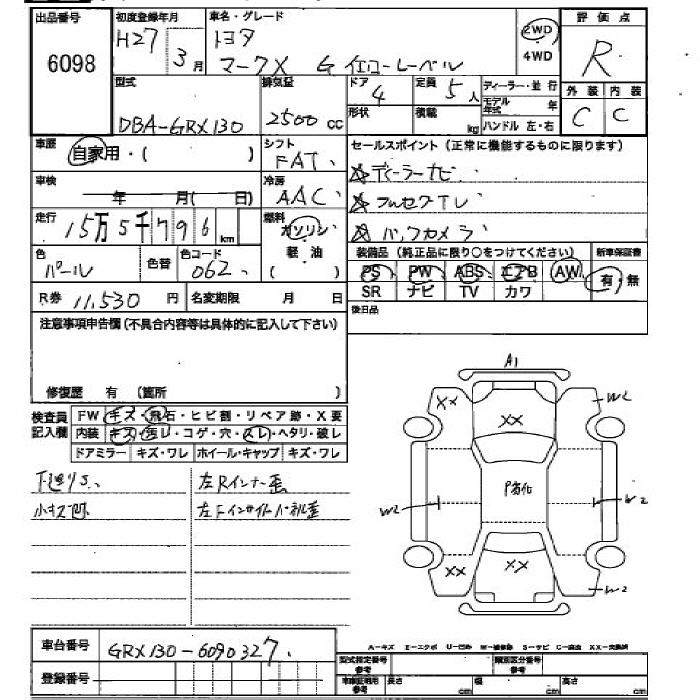 出品番号 初度登録年月 車名・グレード 評価点
6098 H27 3月 トヨタ 2WD R
マークX G イエローレーベル 4WD
型式 排気量 ドア 定員 ディーラー・並行 外装 内装
DBA-GRX130 2500 cc 4 5人 モデル年式 年 C C
形状 積載 kg ハンドル 左・右
車歴 自家用・( ) シフト FAT セールスポイント(正常に機能するものに限ります)
車検 年 月( 日) 冷房 AAC ☆ディーラーナビ
☆フルセグTV
走行 15万5千796 km 燃料 ガソリン ☆バックカメラ
軽油
( )
色 パール 色替 色コード 062 装備品(純正品に限り○をつけてください) 新車保証書
PS PW ABS エアB AW 有・無
SR ナビ TV カワ
R券 11,530円 名変期限 月 日 後日品
注意事項申告欄(不具合内容等は具体的に記入して下さい)
修復歴 有 (箇所 )
検査員記入欄 FW キズ・飛石・ヒビ割・リペア跡・X要
内装 キズ・汚レ・コゲ・穴・スレ・ヘタリ・破レ
ドアミラー キズ・ワレ ホイール・キャップ キズ・ワレ
下廻りS 左Rインナー歪
小キズ凹 左Fインサイドパネル歪
A1
XX W2
XX
P劣化
W2 W2
XX XX W2
A-キズ E-エクボ U-凹ミ W-補修跡 S-サビ C-腐食 XX-交換済
車台番号 GRX130-6090327
登録番号
型式指定番号 参考 類別区分番号 参考
車検証記載 参考 長さ cm 幅 cm 高さ cm